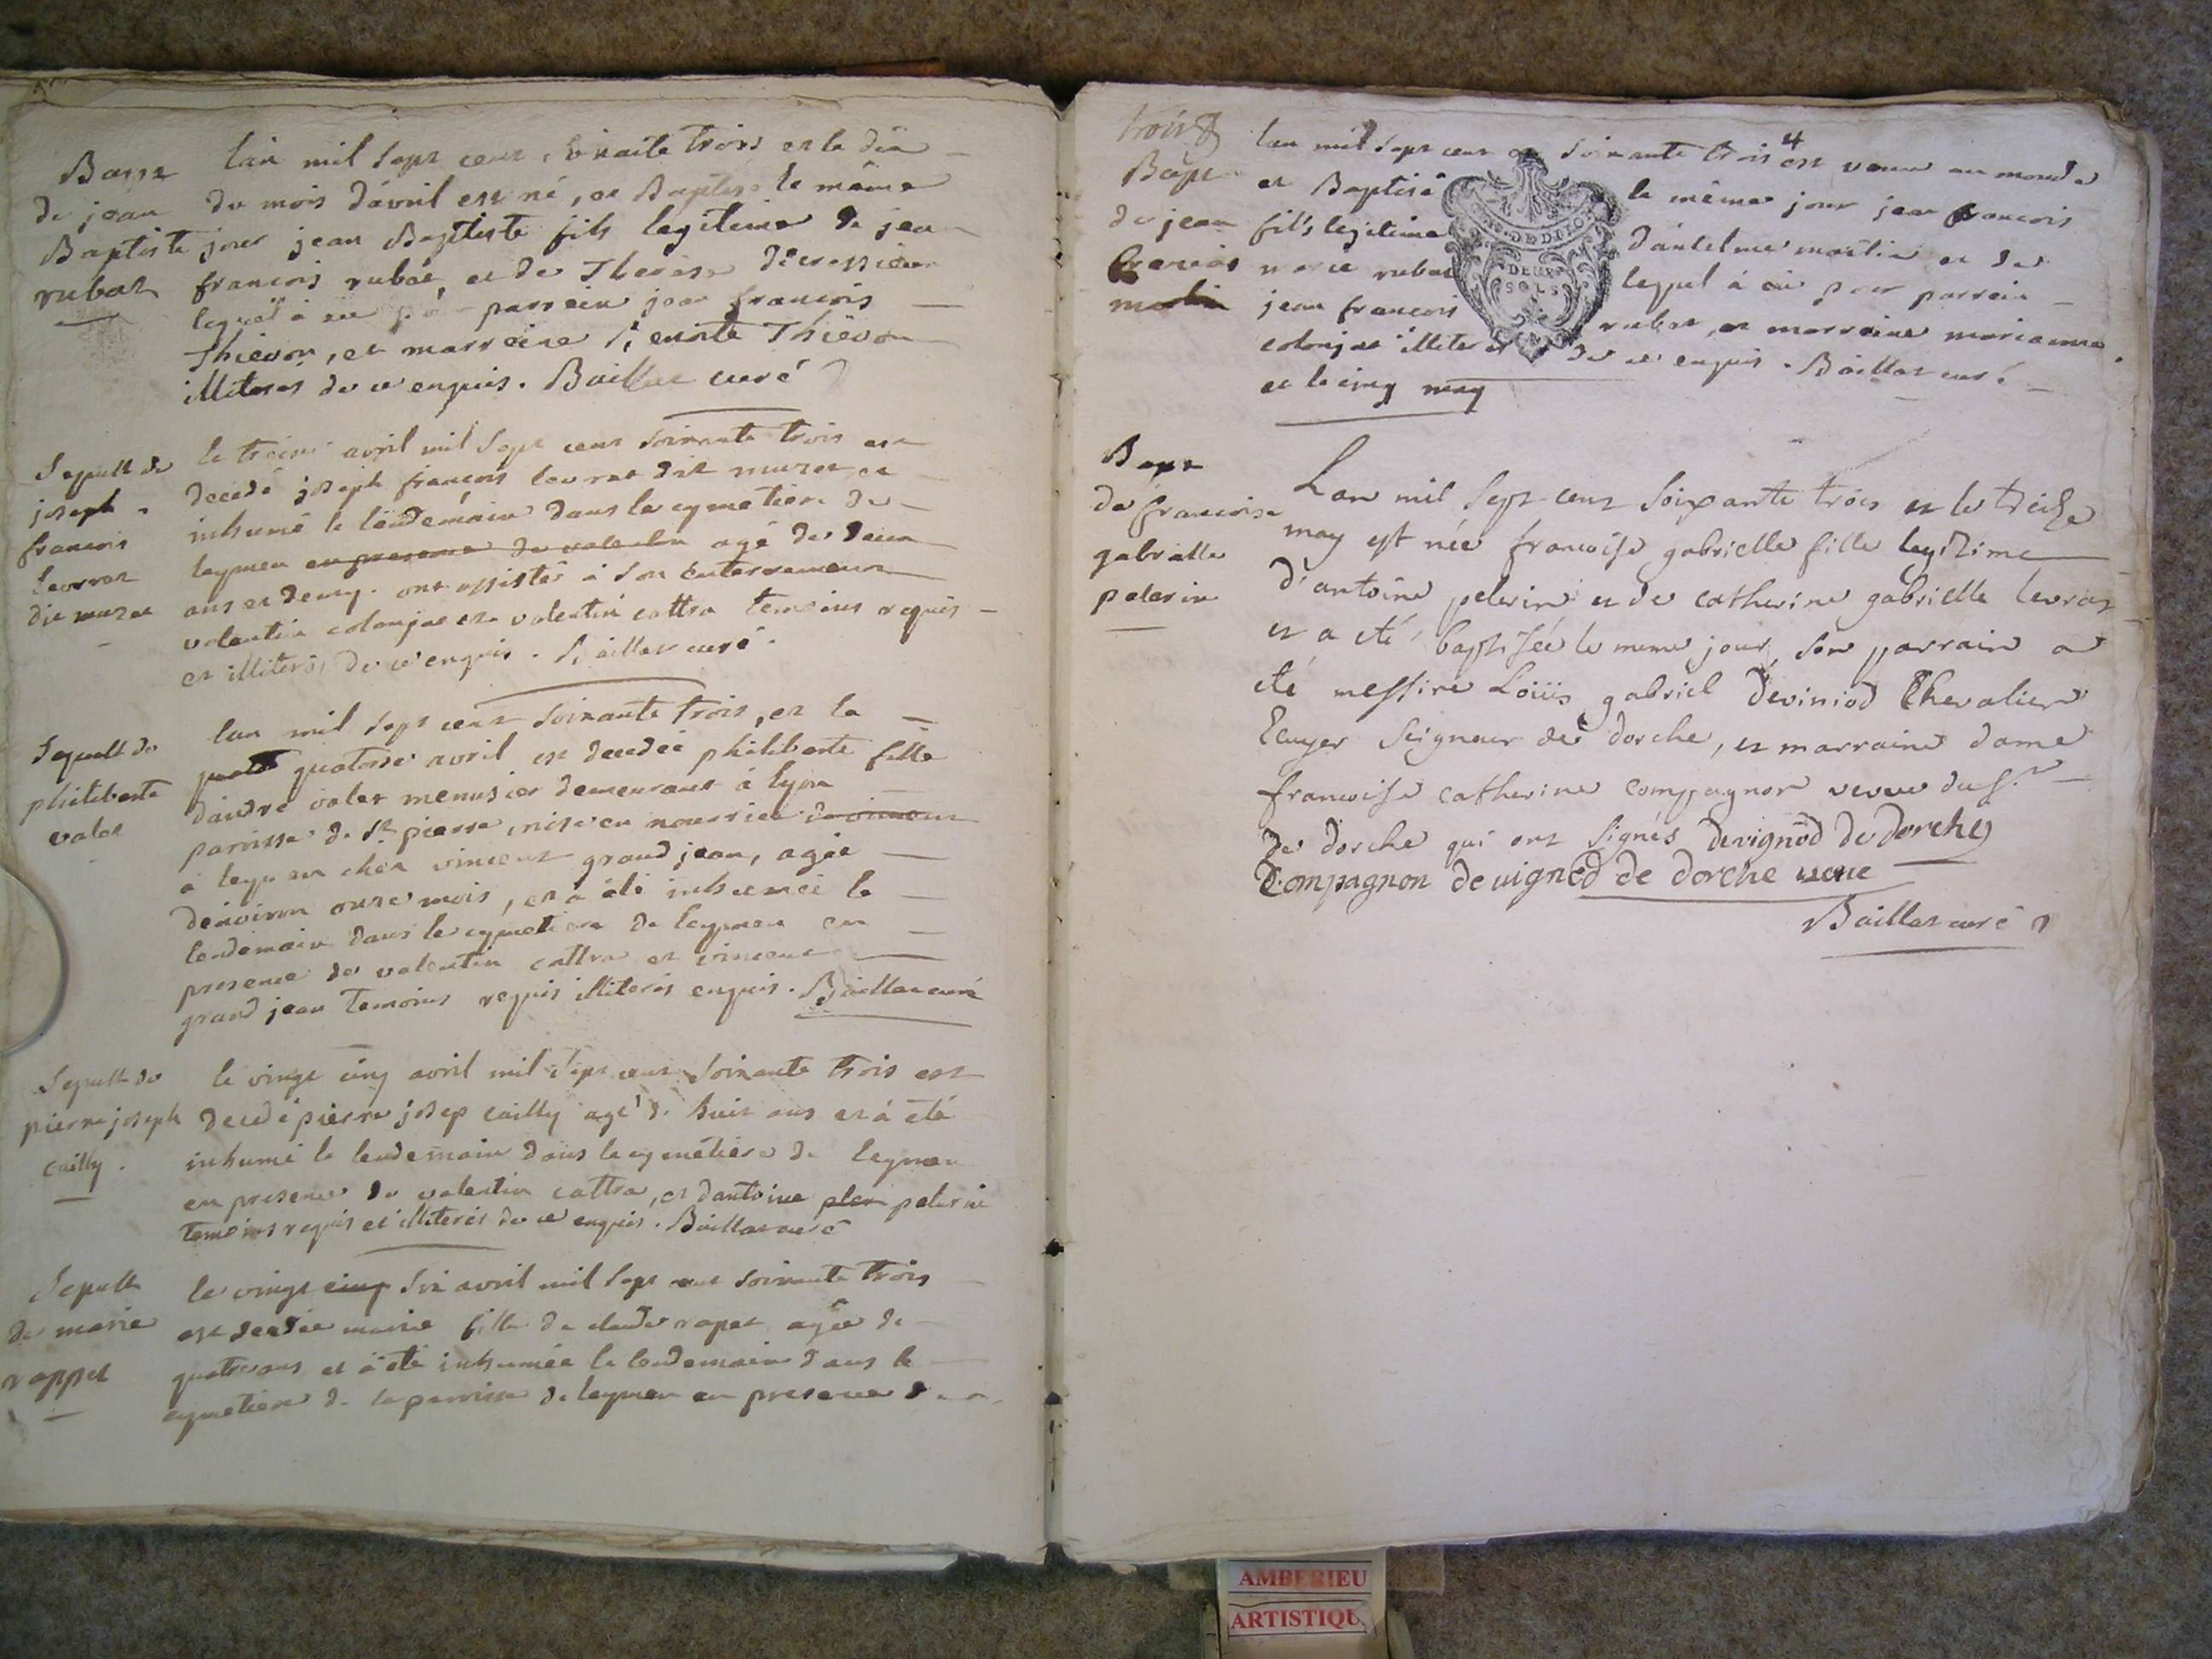 Bapt
de jean
Baptiste
rubat
lan mil sept cent soixante trois et le dix
du mois d'avril est né, et Baptisé le même
jour jean Baptiste fils legitime de jean
francois rubat, et de Therese
lequel à eu pour parrein jean francois
Thievon, et marreine Thievon
illiterés de ce enquis. Baillat curé
Sepult de
joseph
francois
levrat
dit muret
le treise avril mil sept cent soixante trois est
decedé joseph francois levrat dit muret et
inhumé le lendemain dans le cymetiere de
leymen en presence de valentin agé de deux
ans et demy. ont assistés à son enterrement
valentin colonjat et valentin cattra temoins requis
et illiterés de ce enquis. Baillat curé.
Sepult de
philiberte
valet
lan mil sept cent soixante trois, et le
quatorse avril est decedée philiberte fille
dandré valet menusier demeurant à lyon
parroisse de St pierre, mise en nourrice
à leymen chés vincent grand jean, agée
denviron onze mois, et à été inhumée le
lendemain dans le cymetiere de leymen en
presence de valentin cattra et vincent
grand jean temoins requis illiterés enquis. Baillat curé
Sepult de
pierre joseph
cailly.
le vingt cinq avril mil sept cent soixante trois est
decedé pierre josep cailly agé de huit ans et à été
inhumé le lendemain dans le cymetiere de leymen
en presence de valentin cattra, et dantoine peler pelerin
temoins requis et illiterés de ce enquis. Baillat curé
Sepult
de marie
rappet
le vingt cinq six avril mil sept cent soixante trois
est decedée marie fille de claude rapet agée de
quatre ans et à été inhumée le lendemain dans le
cymetiere de la parroisse de leymen en presence de
trois
4
Bapt
de jean
francois
martin
lan mil sept cent soixante trois est venu au monde
et Baptisé le même jour jean francois
fils legitime d'antelme martin et de
marie rubat lequel à eu pour parrein
jean francois rubat, et marreine marianne
colonjat illiterés de ce enquis. Baillat curé
et le cinq may
DEUX
SOLS
Bapt
de francoise
gabrielle
pelerin
Lan mil sept cent soixante trois et le treize
may est née francoise gabrielle fille legitime
d'antoine pelerin et de catherine gabrielle levrat
et a eté baptisée le meme jour, son parrain a
eté messire Loüis gabriel deviniod Chevalier
Ecuyer Seigneur de dorche, et marraine dame
francoise catherine compagnon veuve du sr
de dorche qui ont signés devignod de dorche
Compagnon de vigned de dorche veuve
Baillat curé
AMBERIEU
ARTISTIQU